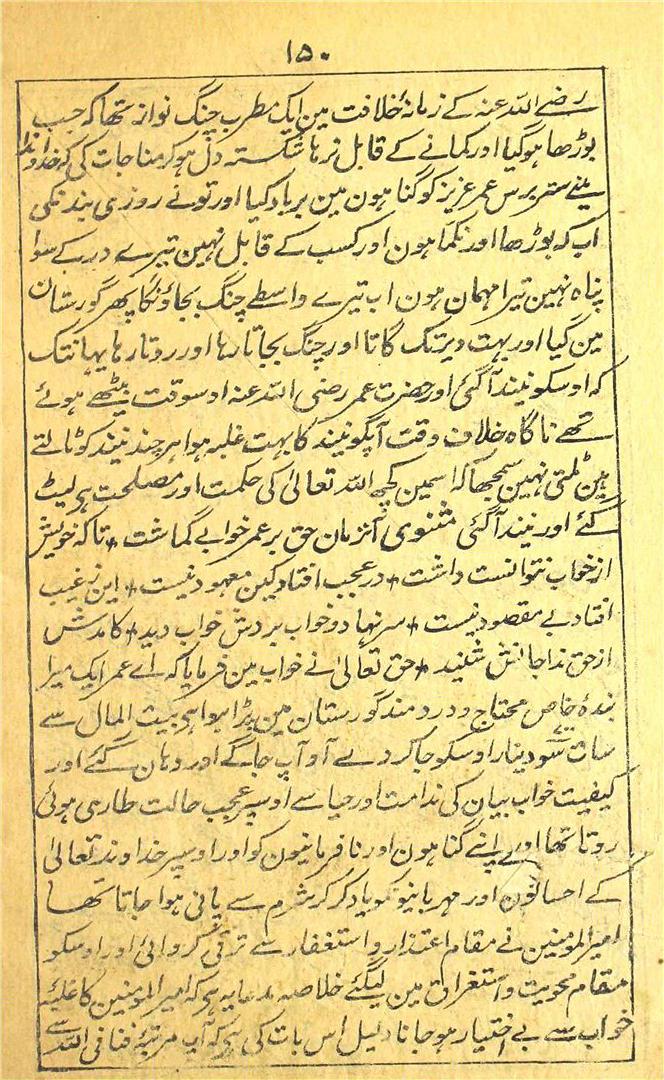 ۱۵۰
رضے اللہ عنہ کے زمانۂ خلافت مین ایک مطرب چنگ نواز تھا کہ جب
بوڑھا ہوگیا اور کمانے کے قابل نرہا شکستہ دل ہوکر مناجات کی کہ خداوندا
مینے ستر برس عمر عزیز کو گناہون مین برباد کیا اور تونے روزی بند نکی
اب کہ بوڑھا اور نکما ہون اور کسب کے قابل نہین تیرے در کے سوا
پناہ نہین تیرا مہمان ہون اب تیرے واسطے چنگ بجاؤنگا پھر گورستان
مین گیا اور بہت دیر تک گاتا اور چنگ بجاتا رہا اور روتا رہا یہانتک
کہ اوسکو نیند آگئی اور حضرت عمر رضی اللہ عنہ اوسوقت بیٹھے ہوئے
تھے ناگاہ خلاف وقت آپکو نیند کا بہت غلبہ ہوا ہر چند نیند کو ٹالتے
ہین ٹلتی نہین سمجھا کہ اسمین کچھ اللہ تعالیٰ کی حکمت اور مصلحت ہے لیٹ
گئے اور نیند آگئی مثنوی آنزمان حق بر عمر خوابے گماشت + تاکہ خویش
از خواب نتوانست داشت + در عجب افتاد کین معہود نیست + این ز غیب
افتاد بے مقصود نیست + سر نہاد و خواب بردش خواب دید + کامدش
از حق ندا جانش شنید + حق تعالیٰ نے خواب مین فرمایا کہ اے عمر ایک میرا
بندۂ خاص محتاج و دردمند گورستان مین پڑا ہوا ہی بیت المال سے
سات سو دینار اوسکو جا کر دے آؤ آپ جاگے اور وہان گئے اور
کیفیت خواب بیان کی ندامت اور حیا سے اوسپر عجب حالت طاری ہوئی
روتا تھا اور اپنے گناہون اور نافرمانیون کو اور اوسپر خداوند تعالیٰ
کے احسانون اور مہربانیونکو یاد کر کر شرم سے پانی ہوا جاتا تھا
امیر المومنین نے مقام اعتذار و استغفار سے ترقی کروائی اور اوسکو
مقام محویت و استغراق مین لیگئے خلاصہ مدعا یہ ہی کہ امیر المومنین کا غلبۂ
خواب سے بے اختیار ہو جانا دلیل اس بات کی ہی کہ آپ مرتبۂ فنا فی اللہ سے